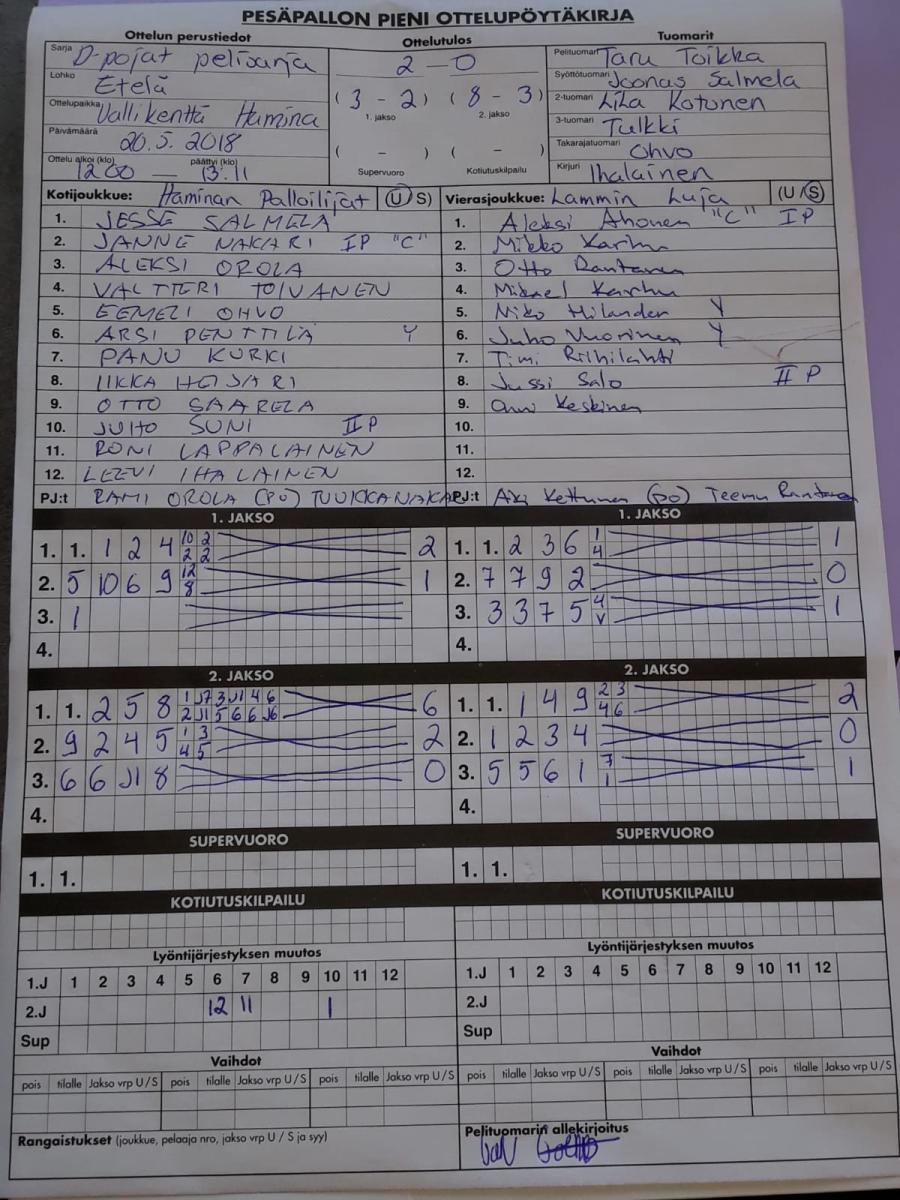 PESÄPALLON PIENI OTTELUPÖYTÄKIRJA
Ottelun perustiedot
Sarja D-pojat pelisarja
Lohko Etelä
Ottelupaikka Vallikenttä Hamina
Päivämäärä 20.5.2018
Ottelu alkoi (klo) päättyi (klo)
12 00 — 13.11
Ottelutulos
2 – 0
(3 – 2) (8 – 3)
1. jakso 2. jakso
( – ) ( – )
Supervuoro Kotiutuskilpailu
Tuomarit
Pelituomari Taru Toikka
Syöttötuomari Joonas Salmela
2-tuomari Liia Kotonen
3-tuomari Tulkki
Takarajatuomari Ohvo
Kirjuri Ihalainen
Kotijoukkue: Haminan Palloilijat (U/S)
1. JESSE SALMELA
2. JANNE NAKARI IP "C"
3. ALEKSI OROLA
4. VALTTERI TOIVANEN
5. EEMELI OHVO
6. ARSI PENTTILÄ Y
7. PANU KURKI
8. IIKKA HEJARI
9. OTTO SAARELA
10. JUHO SUNI II P
11. RONI LAPPALAINEN
12. LEEVI IHALAINEN
PJ:t RAMI OROLA (PJ) TUUKKA NAKA
Vierasjoukkue: Lammin Luja (U/S)
1. Aleksi Ahonen "C" IP
2. Mikko Karhu
3. Otto Rantanen
4. Mikael Karhu
5. Niko Hilander Y
6. Juho Vuorinen Y
7. Timi Riihilahti
8. Jussi Salo II P
9. Onni Keskinen
10.
11.
12.
PJ:t Aki Kettunen (po) Teemu Rantanen
1. JAKSO
1. 1. 1 2 4 10 2 2 2 2
2. 5 10 6 9 12 8 1
3. 1
4.
1. JAKSO
1. 1. 2 3 6 1 4 1
2. 7 7 9 2 0
3. 3 3 7 5 4 V 1
4.
2. JAKSO
1. 1. 2 5 8 1 J7 3 J1 4 6 2 J1 5 6 6 J6 6
2. 9 2 4 5 1 3 4 5 2
3. 6 6 J1 8 0
4.
2. JAKSO
1. 1. 1 4 9 2 3 4 6 2
2. 1 2 3 4 0
3. 5 5 6 1 7 1 1
4.
SUPERVUORO
1. 1.
SUPERVUORO
1. 1.
KOTIUTUSKILPAILU
KOTIUTUSKILPAILU
Lyöntijärjestyksen muutos
1.J 1 2 3 4 5 6 7 8 9 10 11 12
2.J 12 11 1
Sup
Lyöntijärjestyksen muutos
1.J 1 2 3 4 5 6 7 8 9 10 11 12
2.J
Sup
Vaihdot
pois tilalle Jakso vrp U/S pois tilalle Jakso vrp U/S pois tilalle Jakso vrp U/S
Vaihdot
pois tilalle Jakso vrp U/S pois tilalle Jakso vrp U/S pois tilalle Jakso vrp U/S
Rangaistukset (joukkue, pelaaja nro, jakso vrp U / S ja syy)
Pelituomarin allekirjoitus